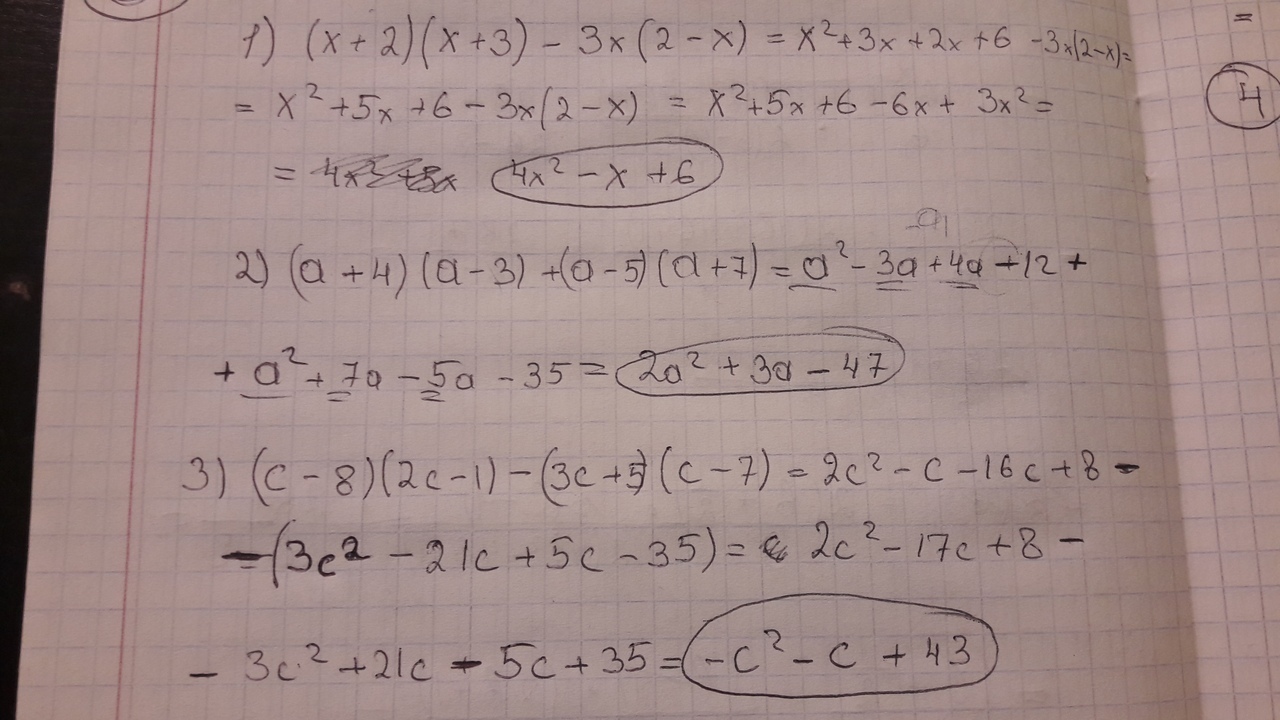 1) (x+2)(x+3) - 3x(2-x) = x²+3x+2x+6 -3x(2-x)=
= x²+5x+6-3x(2-x) = x²+5x+6-6x+3x²=
= 4x²-x+6
2) (a+4)(a-3)+(a-5)(a+7) = a²-3a+4a+12+
+a²+7a-5a-35 = 2a²+3a-47
3) (c-8)(2c-1)-(3c+5)(c-7) = 2c²-c-16c+8-
-(3c²-21c+5c-35) = 2c²-17c+8-
-3c²+21c-5c+35 = -c²-c+43
=
4